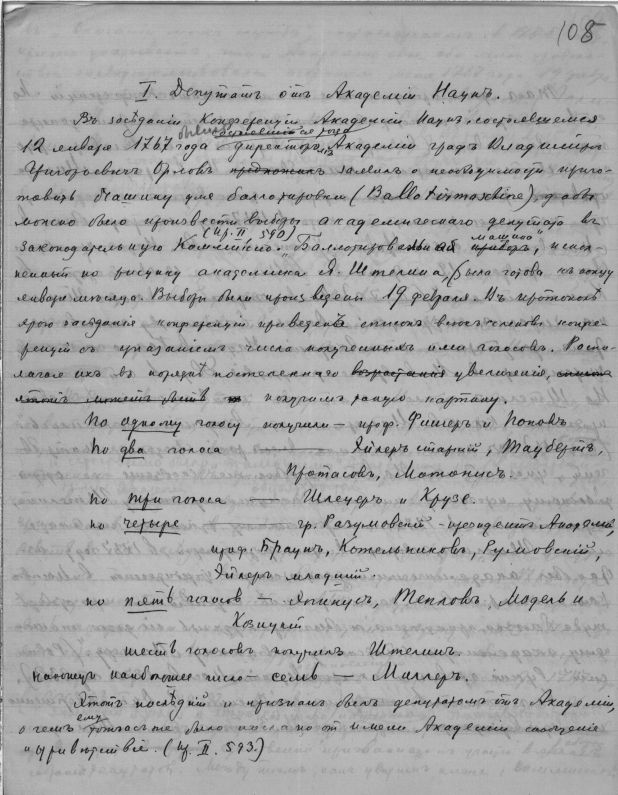 108
I. Депутатъ отъ Академіи Наукъ.
Въ засѣданіи Конференціи Академіи Наукъ, состоявшемся
12 января 1767 года директоръ Академіи графъ Владиміръ
Григорьевичъ Орловъ предложилъ заявилъ о необходимости приго-
товить машину для баллотировки (Ballotirmaschine), дабы
можно было произвести выборы академическаго депутата въ
законодательную Коммиссію. (пр. II 590) "Баллотировальная приборъ машина", испол-
ненный по рисунку академика Я. Штелина, была готова къ концу
января мѣсяца. Выборы были произведены 19 февраля. Въ протоколѣ
этого засѣданія конференціи приведенъ списокъ всѣхъ членовъ конфе-
ренціи съ указаніемъ числа полученныхъ ими голосовъ. Распо-
лагая ихъ въ порядкѣ постепеннаго возрастанія увеличенія,
получимъ такую картину.
По одному голосу получили — проф. Фишеръ и Поповъ
По два голоса — Эйлеръ старшій, Таубертъ,
Протасовъ, Матонисъ.
по три голоса — Шлецеръ и Крузе.
по четыре — гр. Разумовскій - президентъ Академіи,
проф. Браунъ, Котельниковъ, Румовскій,
Эйлеръ младшій.
по пять голосовъ — Эпинусъ, Тепловъ, Модель и
Козицкій
шесть голосовъ получилъ Штелинъ.
наконецъ наибольшее число — семь — Миллеръ.
Этотъ послѣдній и признанъ былъ депутатомъ отъ Академіи,
о чемъ ему тотчасъ же было послано отъ имени Академіи сообщеніе
и привѣтствіе. (пр. II. 593.)